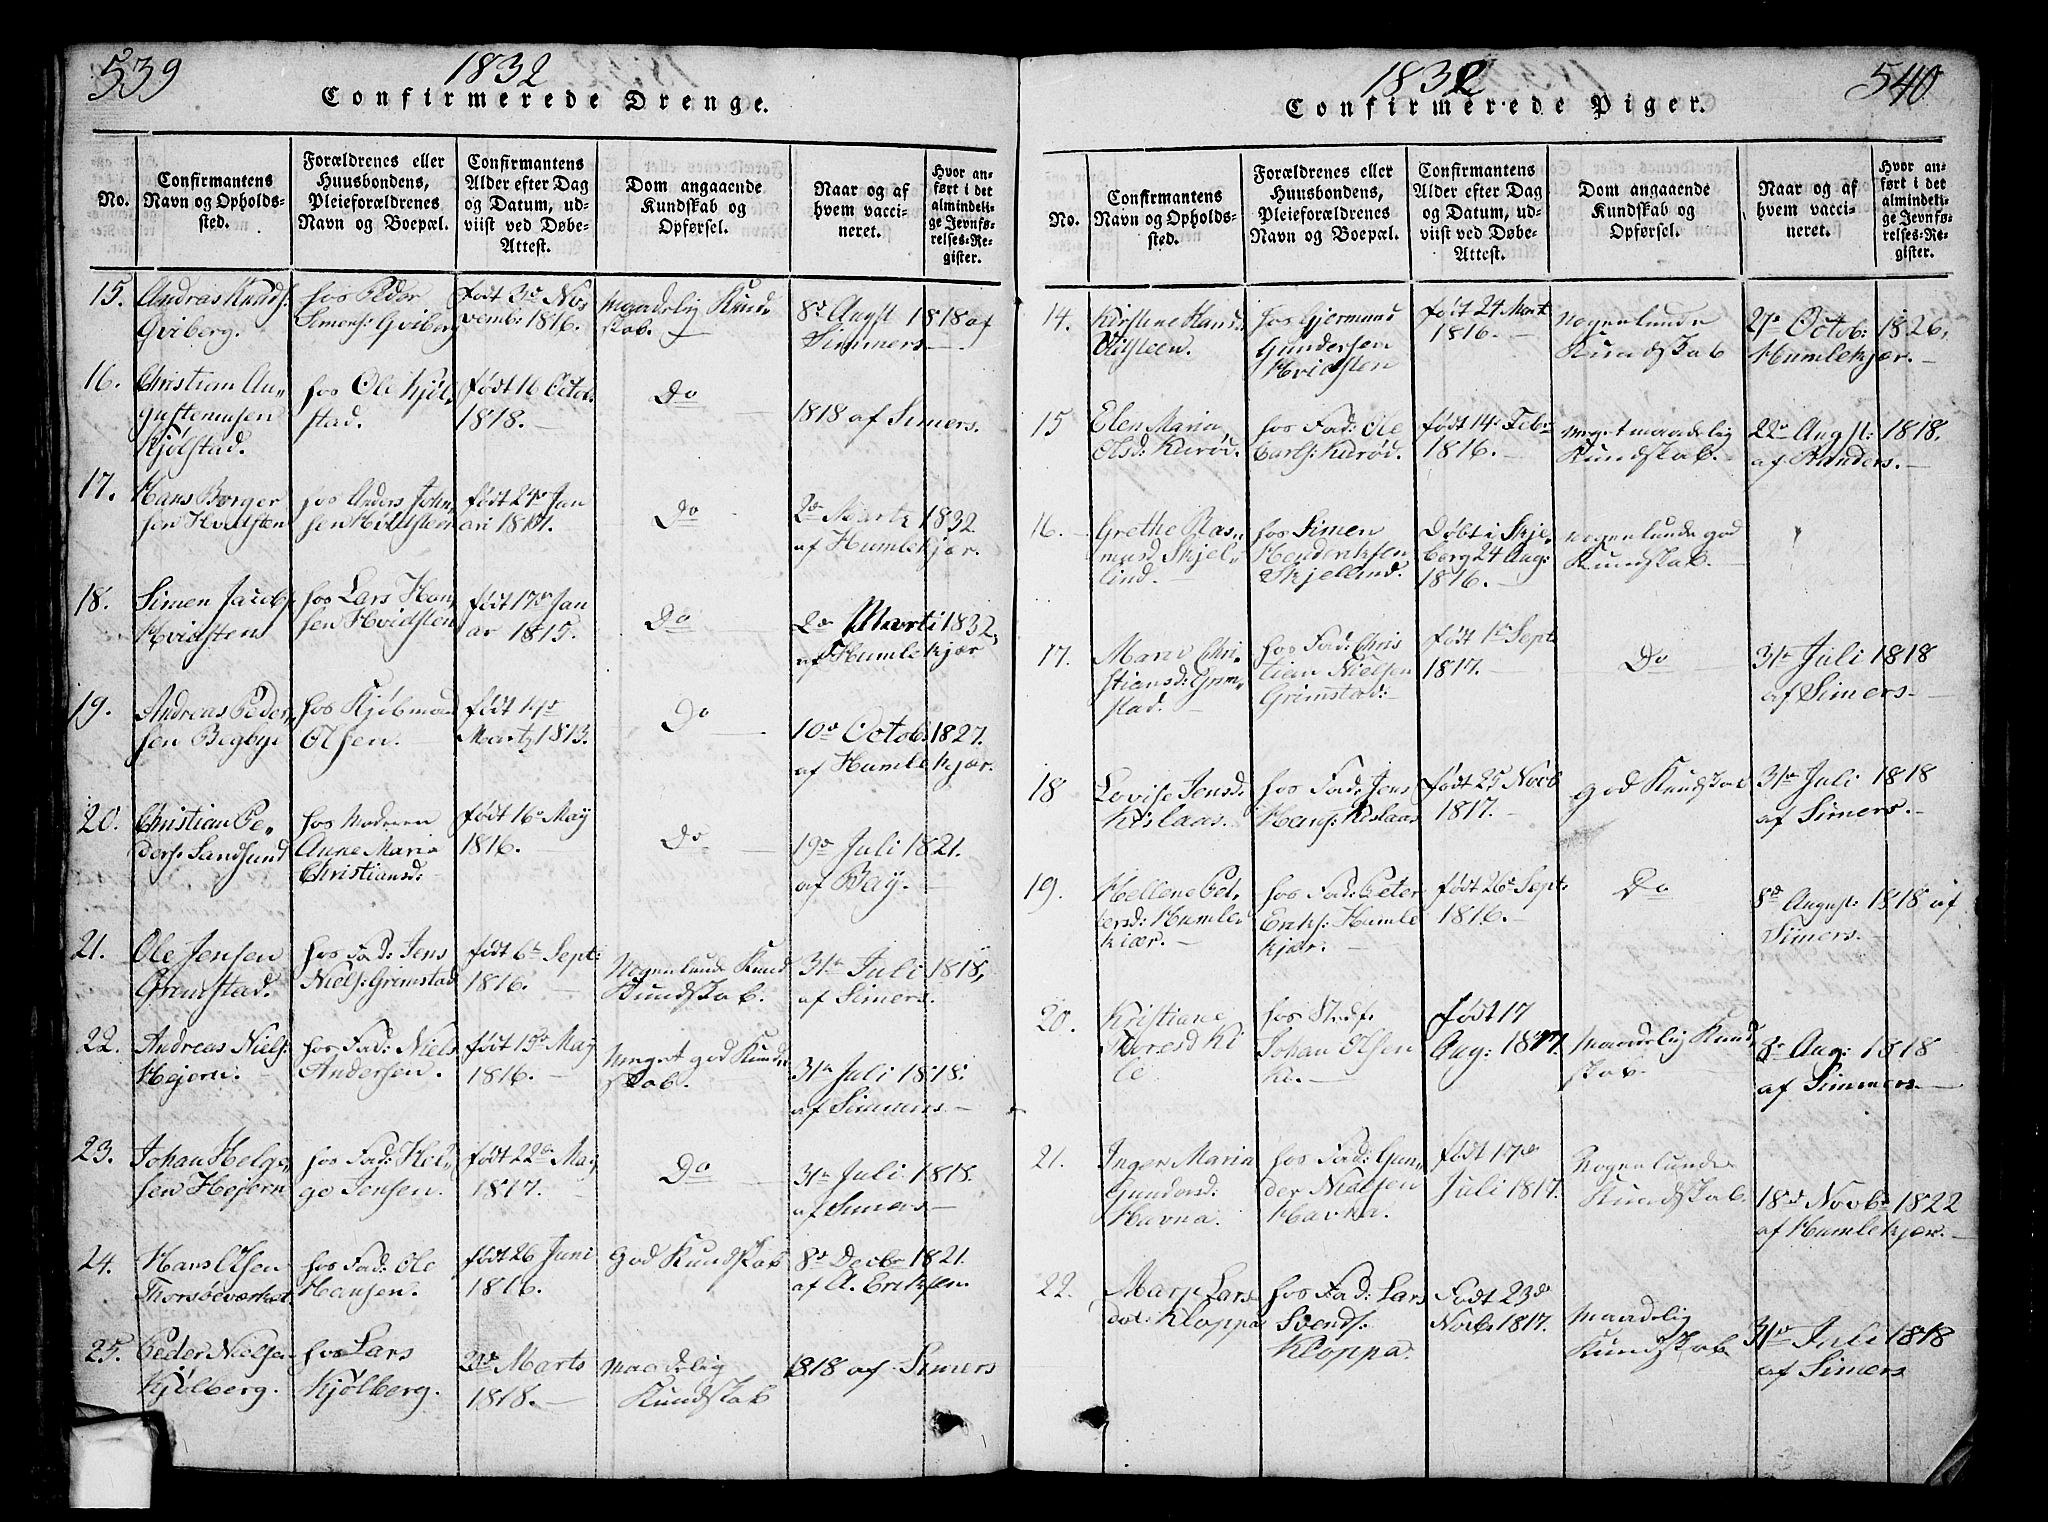 539
1832
Confirmerede Drenge.
No.
Confirmantens
Navn og Opholds-
sted.
Forældrenes eller
Huusbondens,
Pleieforældrenes
Navn og Boepæl.
Confirmantens
Alder efter Dag
og Datum, ud-
viist ved Døbe-
Attest.
Dom angaaende
Kundskab og
Opførsel.
Naar og af
hvem vacci-
neret.
Hvor an-
ført i det
almindeli-
ge Jevnfø-
relses-Re-
gister.
15.
Andreas Knuds:
Gviberg.
hos Peder
Simens: Gviberg
født 3d Nov
vemb: 1816.
maadelig Kund-
skab.
8d Augst 1818 af
Simmers.
16.
Christian Au-
gustenusen
Kjølstad.
hos Ole Kjøl-
stad.
født 16 Octob.
1818.
Do
1818 af Simers.
17.
Hans Borger
sen Hvidsten
hos Anders John-
sen Hvidsten
født 24de Jan
ari 1817.
Do
2den Martz 1832
af Humlekjær.
18.
Simen Jacobs
Hvidsten
hos Lars Han-
sen Hvidsten
født 17de Jan
ar 1815.
Do
2de Marti 1832,
af Humlekjær
19.
Andreas Peder-
sen Begbye
hos Kjøbmand
Olsen.
født 14de
Martz 1813.
Do
10de Octob 1827.
af Humlekjær.
20.
Christian Pe-
ders: Sandsund
hos Moderen
Anne Maria
Christiansd:
født 16de May
1816.
Do
19de Juli 1821.
af Bay.
21.
Ole Jensen
Grimstad.
hos Fad: Jens
Niels: Grimstad
født 6te Sept:
1816.
Nogenlunde Kund
Kundskab.
31te Juli 1818,
af Simers.
22.
Andreas Niels:
Hejern.
hos Fad: Niels
Andersen.
født 19de May
1816.
Meget god Kund-
skab.
31te Juli 1818.
af Simmers.
23.
Johan Helge-
sen Hejern
hos Fad: Hel-
ge Jensen.
født 22de May
1817.
Do
31te Juli 1818.
af Simers
24.
Hans Olsen
Thorsøeværket.
hos Fad: Ole
Hansen.
født 26 Juni
1816.
God Kundskab
8de Decbr 1821.
af A. Eriksen.
25.
Peder Nielsen
Kjølberg.
hos Lars
Kjølberg.
Marts
1818.
Maadelig
Kundskab
1818 af Simers
1832
540
Confirmerede Piger.
No.
Confirmantens
Navn og Opholds-
sted.
Forældrenes eller
Huusbondens,
Pleieforældrenes
Navn og Boepæl.
Confirmantens
Alder efter Dag
og Datum, ud-
viist ved Døbe-
Attest.
Dom angaaende
Kundskab og
Opførsel.
Naar og af
hvem vacci-
neret.
Hvor an-
ført i det
almindeli-
ge Jevnfø-
relses-Re-
gister.
14.
Kirstine Hans
hos Gjermund
Gundersen
Hvidsten
født 24 Mart
1816.
Nogenlunde
Kundskab
27de Octob: 1826,
Humlekjær.
15
Elen Maria
Olsd: Kurød.
hos Fad: Ole
Carls: Kurød.
født 14: Febr
1816.
Meget maadelig
Kundskab.
22de Augst: 1818,
af Randers.
16.
Grethe Ras-
musd Skjel-
lind.
hos Simen
Henderiksen
Skjellind.
Døbt i Skje-
berg 24 Aug:
1816.
nogenlunde god
Kundskab.
17.
Maren Chri-
stiansd: Grim-
stad.
hos Fad: Chris
tian Nielsen
Grimstad:
født 1de Sept
1817.
Do
31te Juli 1818
af Simers
18
Lovise Jensd:
Kislaas.
hos Fad: Jens
Hans: Kislaas
født 25 Novb
1817.
God Kundskab
31te Juli 1818
af Simers.
19.
Hellene Pet-
tersd: Humle-
kiær.
hos Fad: Peter
Eriks: Humle
kjær.
født 26de Sept:
1816.
Do
8de August: 1818 af
Simers.
20.
Kristiane
Thoresd Ki
le
hos Stedf.
Johan Olsen
Ki.
født 17
Aug: 1817.
maadelig Kund-
skab.
8de Aug: 1818
af Simmers.
21.
Inger Maria
Gundersd:
Havna.
hos Fad: Gun-
der Nielsen
Havna.
født 17de
Juli 1817.
Nogenlunde
Kundskab.
18d Novbr 1822
af Humlekjær.
22.
Marje Lars
dat: Kloppa
hos Fad: Lars
Svends:
Kloppa.
Født 23de
Novb 1817.
maadelig
Kundskab
31te Juli 1818
af Simers